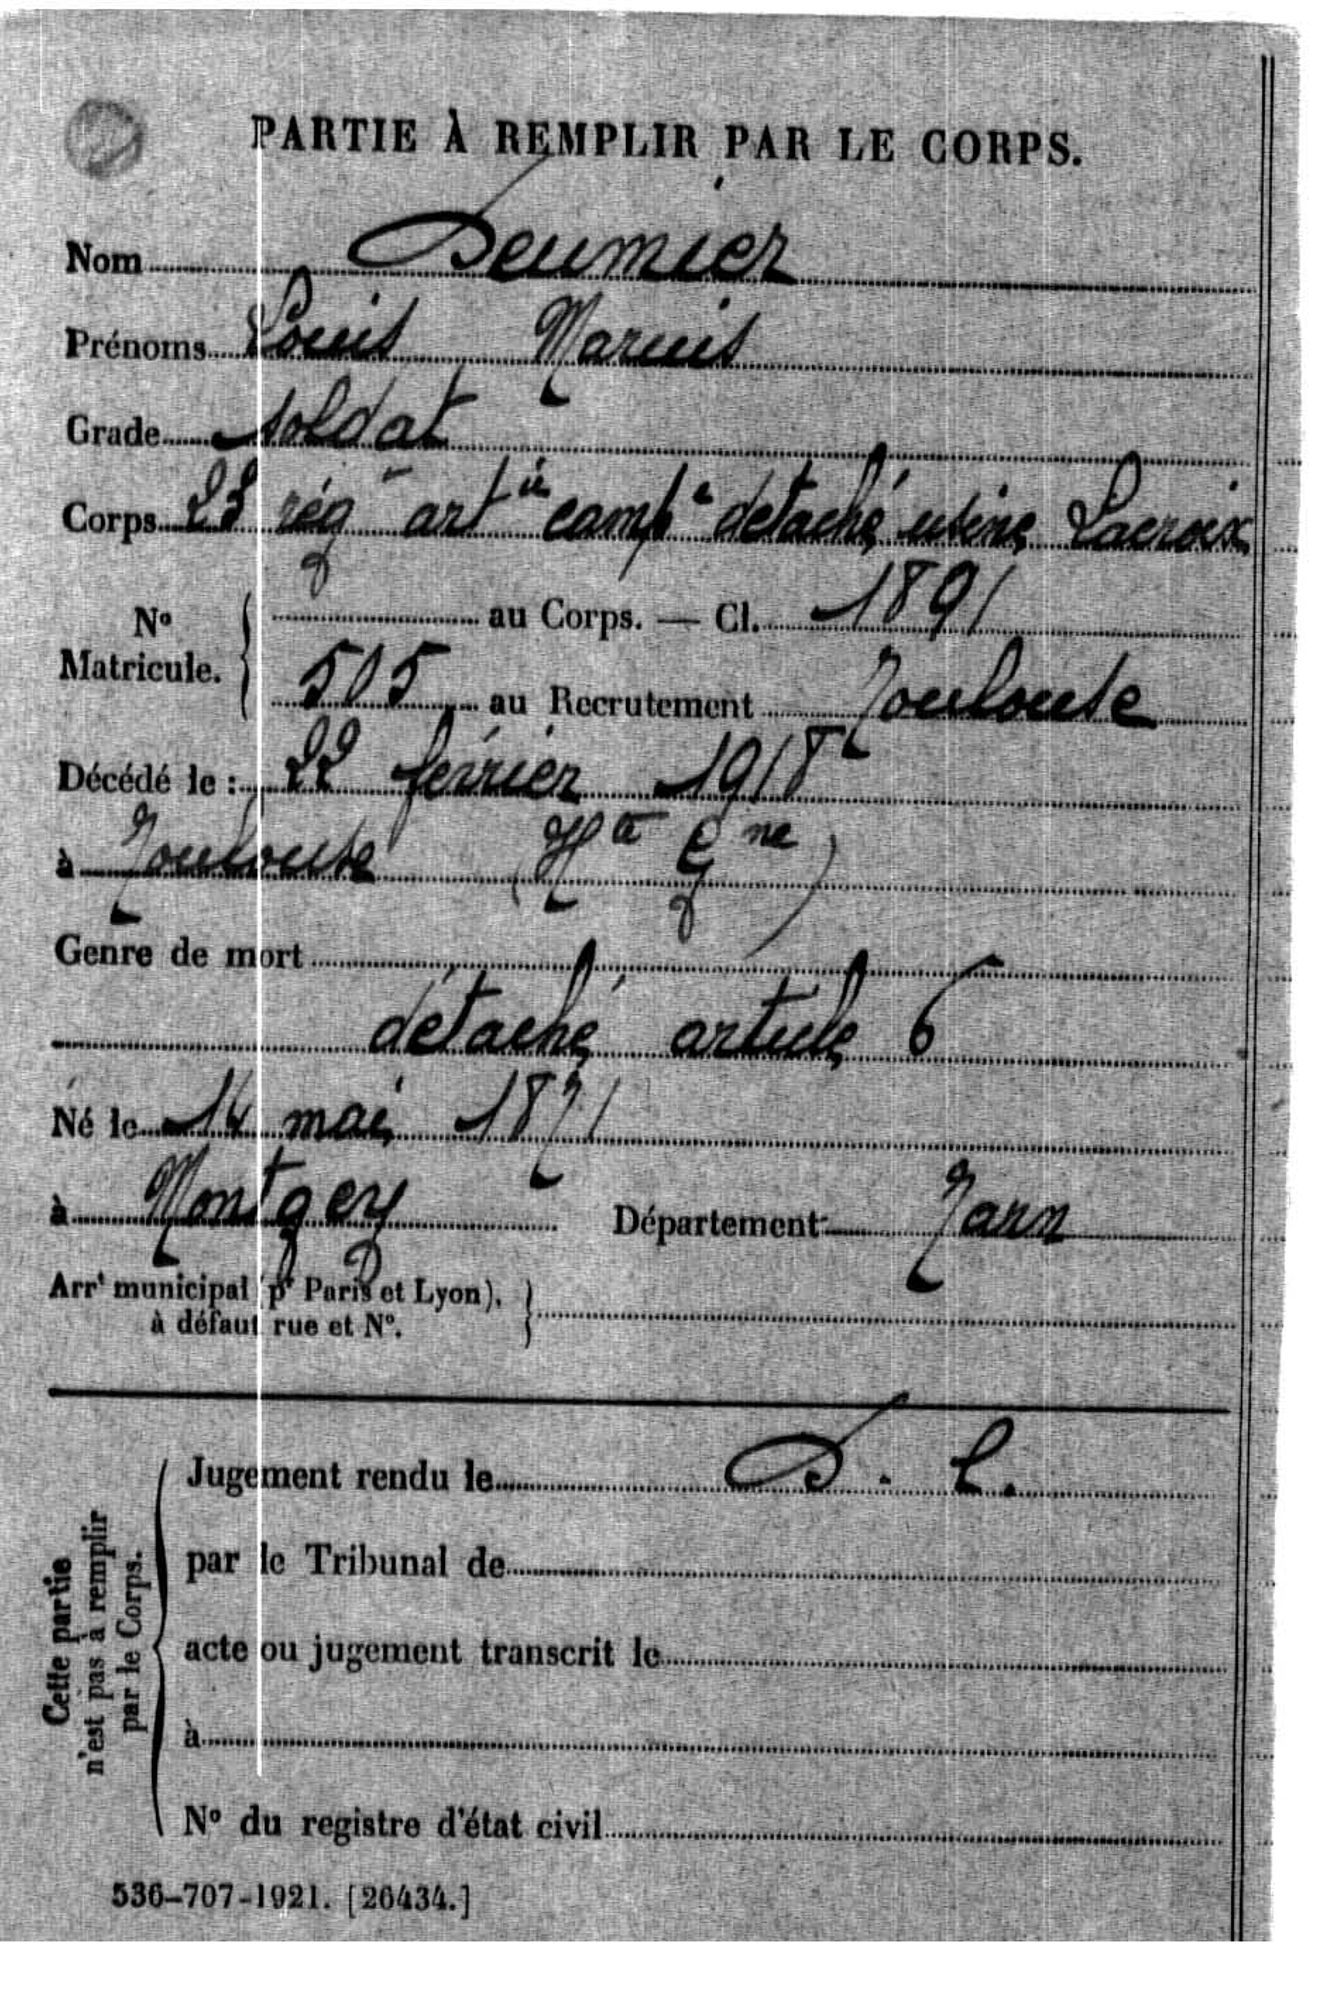 PARTIE À REMPLIR PAR LE CORPS.
Nom Deumier
Prénoms Louis Marius
Grade soldat
Corps 23 rég art ie camp e détaché usine Lacroix
N° Matricule. { au Corps. — Cl. 1891
505 au Recrutement Toulouse
Décédé le : 22 février 1918
à Toulouse (Hte Gne)
Genre de mort
détaché article 6
Né le 14 mai 1871
à Montgey Département Tarn
Arrt municipal (pr Paris et Lyon), à défaut rue et N°. }
Cette partie n'est pas à remplir par le Corps.
Jugement rendu le D. L.
par le Tribunal de
acte ou jugement transcrit le
à
N° du registre d'état civil
536-707-1921. [26434.]